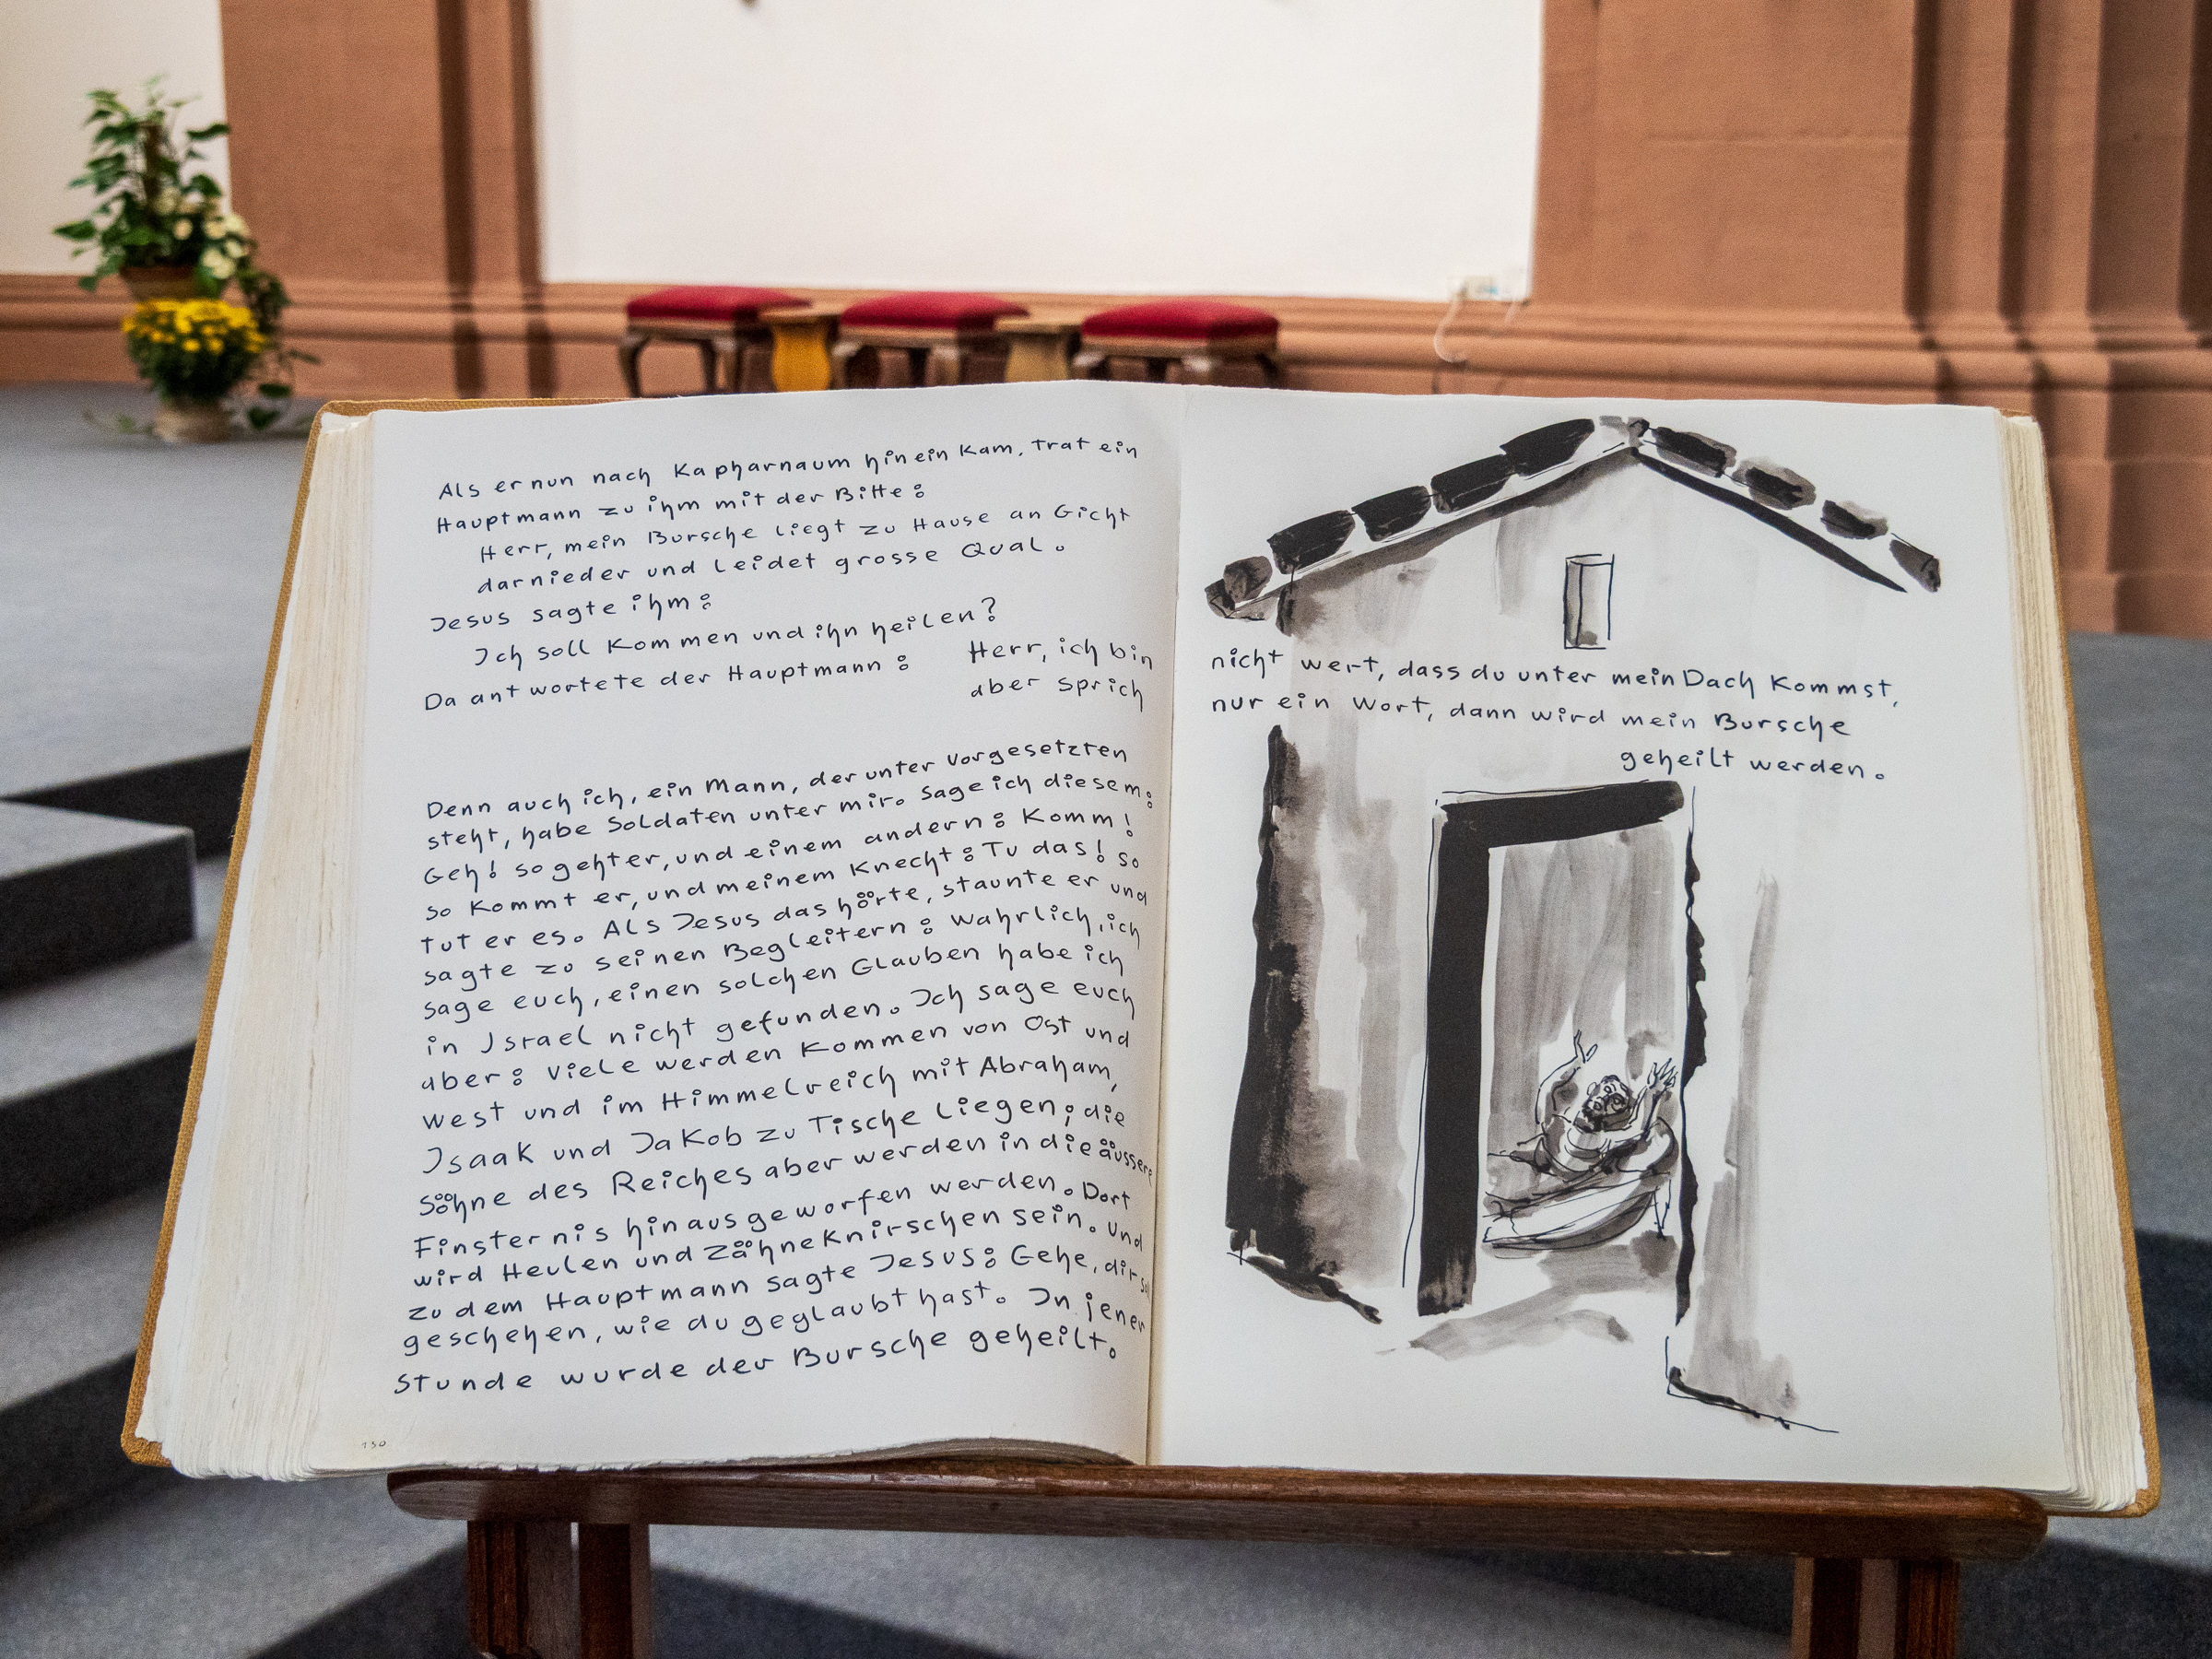 Als er nun nach Kapharnaum hinein kam, trat ein
Hauptmann zu ihm mit der Bitte:
Herr, mein Bursche liegt zu Hause an Gicht
darnieder und leidet grosse Qual.
Jesus sagte ihm:
Ich soll kommen und ihn heilen?
Da antwortete der Hauptmann: Herr, ich bin
aber sprich
Denn auch ich, ein Mann, der unter Vorgesetzten
steht, habe Soldaten unter mir. Sage ich diesem:
Geh! so geht er, und einem andern: Komm!
so kommt er, und meinem Knecht: Tu das! so
tut er es. Als Jesus das hörte, staunte er und
sagte zu seinen Begleitern: Wahrlich, ich
sage euch, einen solchen Glauben habe ich
in Israel nicht gefunden. Ich sage euch
aber: Viele werden kommen von Ost und
West und im Himmelreich mit Abraham,
Isaak und Jakob zu Tische liegen; die
Söhne des Reiches aber werden in die äussere
Finsternis hinausgeworfen werden. Dort
wird Heulen und Zähneknirschen sein. Und
zu dem Hauptmann sagte Jesus: Gehe, dir soll
geschehen, wie du geglaubt hast. In jener
Stunde wurde der Bursche geheilt.
130
nicht wert, dass du unter mein Dach kommst,
nur ein Wort, dann wird mein Bursche
geheilt werden.